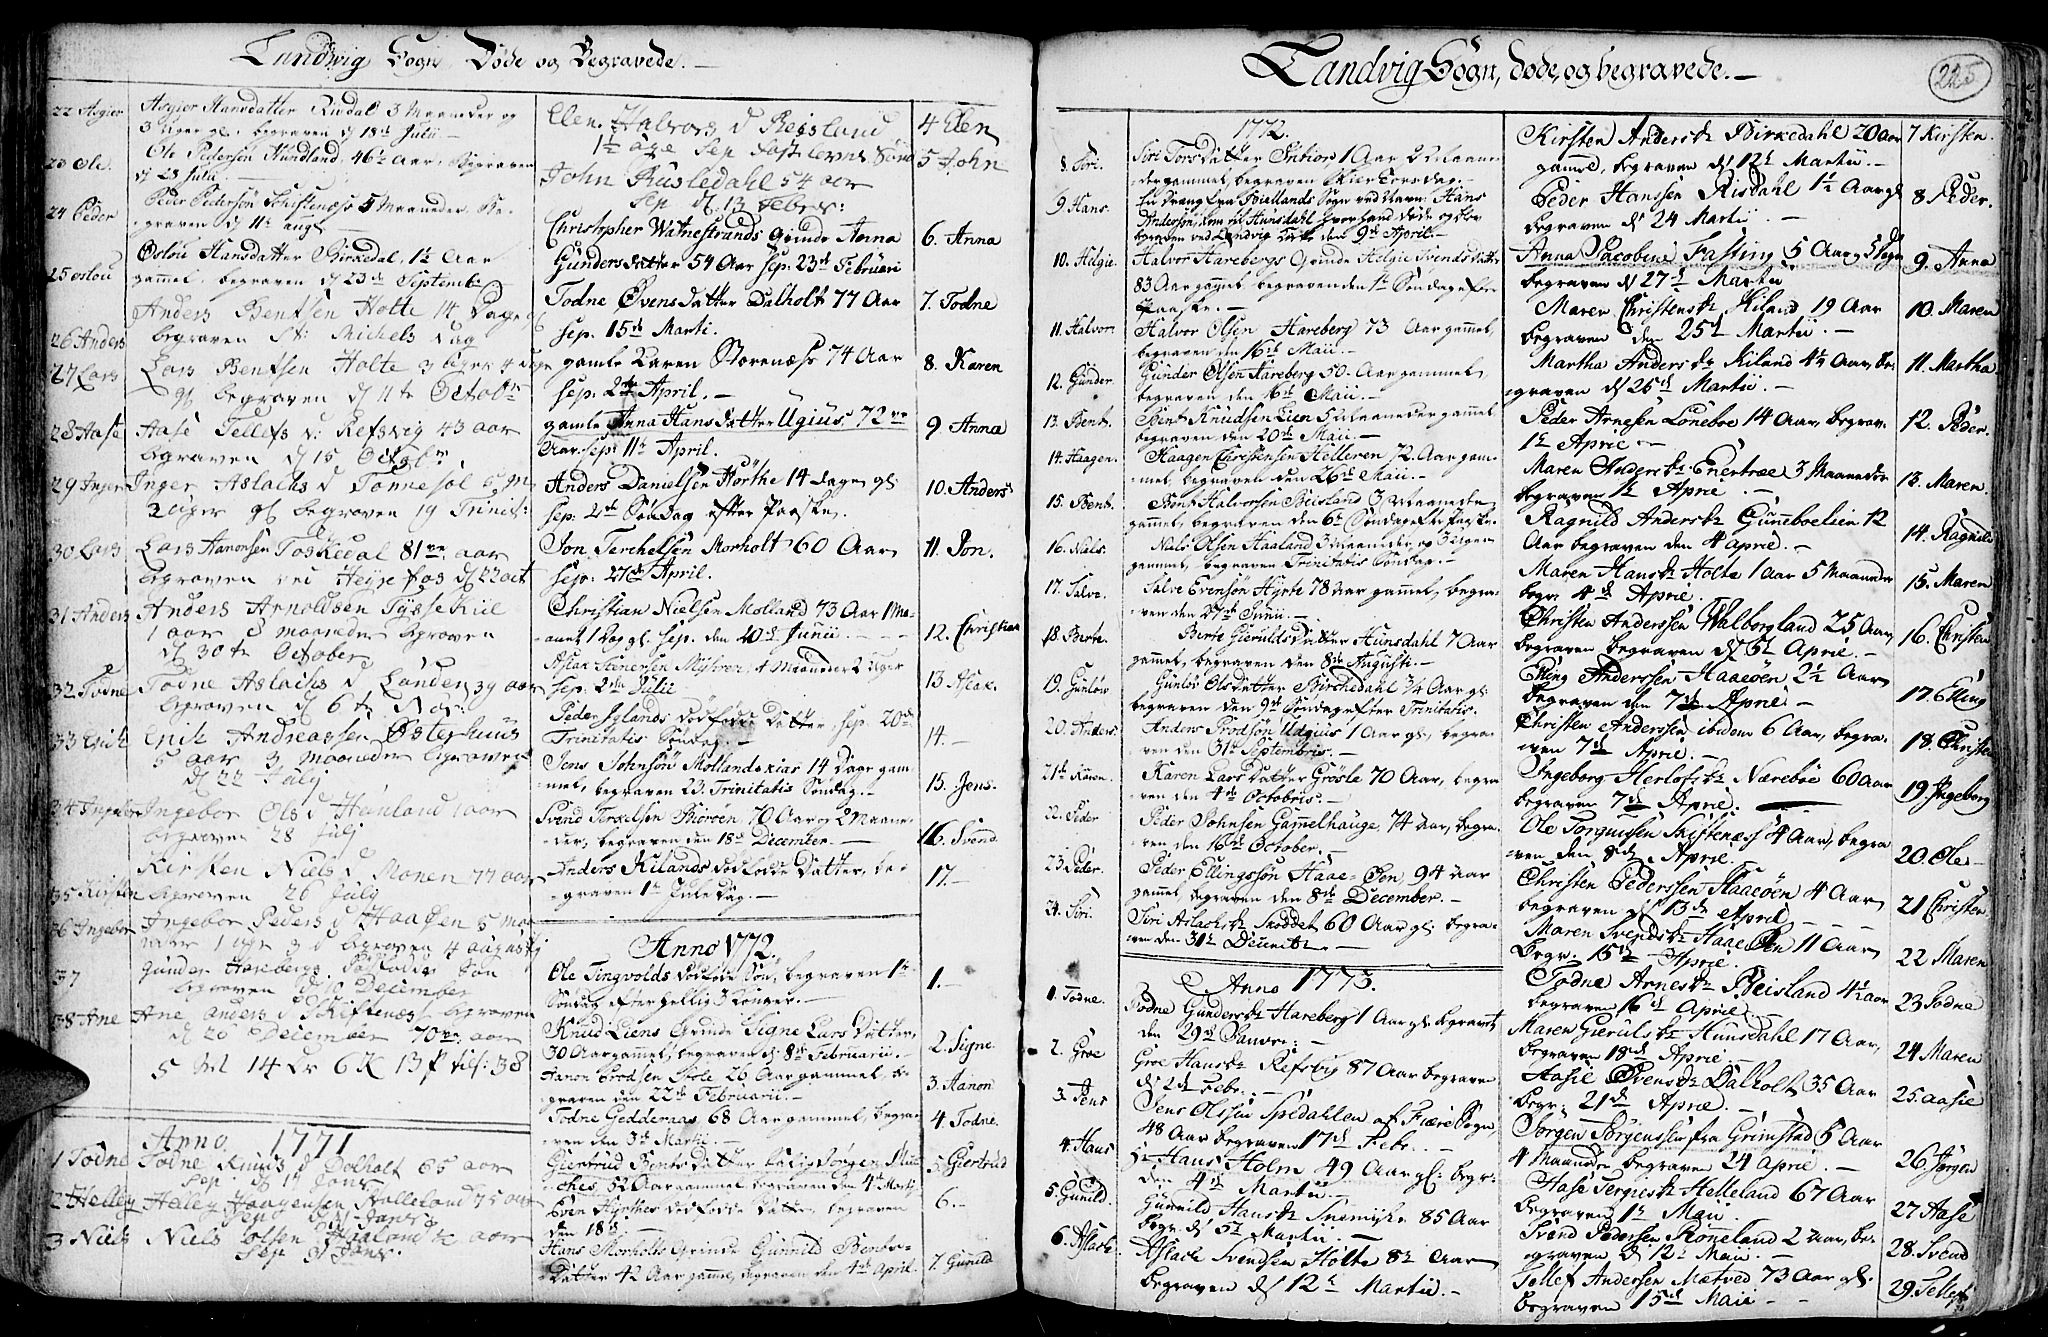 Landwig Sogn, Døde og Begravede. —
22 Asgier Asgier Hansdatter Risdal 3 Maaneder og
3 Uger gl. begraven d 18de Julii —
23 Ole. Ole Pedersen Hundland, 46½ Aar, Begraven
d 28 Julii. —
24 Peder Peder Pedersøn Schiftenæs 5 Maaneder. Be-
graven d 11te Augs
25 Oslou Oslou Hansdatter Birkedal, 1½ Aar
gammel, begraven d 23de Septembr
26 Anders Anders Bentsen Holte 14 Dage gl
begraven St: Michels Dag
27 Lars Lars Bentsen Holte 3 Uger 4 Dage
gl begraven d 4te Octobr
28 Aase Aase Tellefs d: Refsvig 43 aar
begraven d 15 Octobr
29 Inger Inger Aslachs d Tønnesøl 6 M
2 Uger gl begraven 19 Trinit:
30 Lars Lars Aanonsen Toskedal 81 aar
begraven ved Heyefos d 22 oct
31 Anders Anders Arnoldsen Tyssekiil
1 aar d maaneder begraven
d 30te October
32 Todne Todne Aslachs d Landen 39 aar
begraven d 6te Nov:
33 Erik Erik Andreassen Østerhuus
5 aar 3 maaneder begraven
d 22 July
34 Ingebor Ingebor Ols d Heinland 1 aar
begraven 28 July
Kirsten Niels d Monen 77 aar
35 Kirsten begraven 26 July
36 Ingebor Ingebor Peders d Haaøen 5 Mo
naer 1 uge gl begraven 4 augusty
37 Gunder Harebergs Søn
begraven d 10 December
38 Ane Ane Anders d Skiftenæs begraven
d 26 December 70 aar
5 14 6 K 13 P til: 38
Anno 1771
1 Todne Todne Knuds d Dalholt 65 aar
Sep d 14 Jans
2 Helley Helley Haagensen Kalleland 75 aar
Sep d 21 Jans
3 Niels Niels Colsen Haaland aar
Sep d Jans
Elen Halvors d Reisland 4 Elen
1½ age Sep Fastelavns Sønd
John Rusledahl 54 aar 5 John
Sep d: 13 Febr:
Christopher Watnestrands Qvinde Anna 6. Anna
Gunders datter 54 Aar Sep: 23de Februari
Todne Øvens datter Dalholt 77 Aar 7. Todne
sep: 15de Marti.
gamle Karen Storenæss 74 Aar 8. Karen
sep: 2de April. —
gamle Anna Hans datter Ugius, 72 9. Anna
Aar. sep: 11te April.
Anders Danielsen Hørthe 14 dage gl: 10. Anders
sep: 2de Søndag efter Paaske.
Jon Terchelsen Morholt 60 Aar 11. Jon.
sep: 27de April.
Christian Nielsen Molland 73 Aar 1 Ma-
anet 1 Dag gl. sep. den 20de Junii — 12. Christian
Aslak Stenersen Myhren 4 Maaneder 2 Uger
sep: 2den Julii — 13 Aslak.
Peder Iglands dødfødde Datter sep. 20de
Trinitatis Søndag. — 14. —
Jens Johnsøn Mollands Kias 14 Dage gam-
mel, begraven 23. Trinitatis Søndag. — 15. Jens.
Svend Terkelsen Biøroen 70 Aar og 2 Maane-
der, begraven den 18de December. — 16. Svend.
Anders Kilands dødfødde Datter, be-
graven 1te Jule Dag. — 17. —
Anno 1772.
Ole Tingvolds dødfødde Søn, begraven 1te 1. —
Søndag efter hellig 3 Konger. —
Knud Liens Qvinde Signe Lars Datter,
30 Aar gammel, begraven d: 8de Februarii. — 2. Signe.
Aanon Brodsen Støle 26 Aar gammel, be-
graven den 22de Februarii. — 3. Aanon
Todne Geddenaas 68 Aar gammel, begra-
ven den 3de Martii. — 4. Todne.
Giertrud Bents Datter Salig Jørgen Mun
ches, 52 Aar gammel begraven den 4de Marty 5. Giertrud
Even Hyrthes dødfødde Datter begraven 6. —
den 18de —
Hans Morholts Qvinde Gunnild Bents-
Datter 42 Aar gamme, begraven den 4de April. 7. Gunild
Landvig Sogn, døde, og begravede. —
225
1772.
8. Siri. Siri Tors Datter Inbior 1 Aar 2 Maane-
der gammel, begraven Skier Torsdag. —
9. Hans. En Dreng fra Biellands Sogn ved Navn: Hans
Anderssøn, kom til Hunsdahl hvor hand døde og blev
begraven ved Landvig Kirke den 9de April. —
10. Helgie. Halvor Harebergs Qvinde Helgie Svends datter
83 Aar gammel begraven den 1te Søndag efter
Paaske. —
11. Halvor. Halvor Olsen Hareberg 73 Aar gammel,
begraven den 16de Maii. —
12. Gunder. Gunder Olsen Hareberg 50 Aar gammel,
begraven den 16de Maii. —
13. Bent. Bent Knudsen Lien 5 Maaneder gammel
begraven den 20de Maii —
14. Haagen. Haagen Christensen Helleren 72 Aar gam-
mel, begraven den 26de Maii. —
15. Bent. Bent Halvorsen Beisland 3 Maaneder
gammel, begraven den 6te Søndag efter Paaske.
16. Niels. Niels Olsen Haaland 3 Maaneder og 3 Uger
gammel, begraven Trinitatis Søndag. —
17. Salve. Salve Evensøn Hyrte 78 Aar gammel, begra-
ven den 27de Junii —
18. Berte. Berte Gieruldsdatter Hunsdahl 7 Aar
gammel, begraven den 8de Augusti. —
19. Gunlov Gunlov Ols Datter Birchedahl ¾ Aar gl:
begraven den 9de Søndag efter Trinitatis.
20. Anders. Anders Brodsøn Udguis 1 Aar gl, begra-
ven den 31te Septembris. —
21te Karen. Karen Lars Datter Grøsle 70 Aar, begra-
ven den 4de Octobris. —
22. Peder Peder Johnsen Gammelhauge, 74 Aar, begra-
ven den 16de October. —
23. Peder. Peder Ellingssøn Haae-Øen 94 Aar
gammel, begraven den 8de December. —
24. Siri. Siri Aslachs dr Skoddet 60 Aar gl: begra-
ven den 31te Decemtr —
Anno 1773.
1. Todne. Todne Gunders dr Hareberg 1 Aar gl: begravet
den 29de Januvr: —
2. Groe Groe Hans dr Refsvig 87 Aar begraven
d 2de Febr: —
3. Jens Jens Olssen Spedallen af Fiære Sogn,
48 Aar begraven 17de Febr. —
4. Hans Sr Hans Holm 49 Aar gl: begr:
den 4de Martii —
5. Gunild. Gunnild Hans dr Inemyhr 85 Aar
begr: d 5te Martii. —
6. Aslack. Aslack Svendsen Holte 8½ Aar
begraven d 12te Martii —
Kirsten Anders dr Birkedahl 20 Aar 7 Kirsten.
gammel, begraven d 12te Martii. —
Peder Hanssen Risdahl 1½ Aar gl 8 Peder.
begraven d 24 Martii. —
Anna Jacobine Fasting 5 Aar 9. Anna
begraven d 27de Martii
Maren Christens dr Kiland, 19 Aar 10. Maren
begraven den 25de Martii. —
Martha Anders dr Kiland 4½ Aar, be- 11. Martha
graven d 26de Martii. —
Peder Arnesen Løneboe 14 Aar, begrav. 12. Peder.
1te Aprie —
Maren Anders dr Enertræe 3 Maaneder 13. Maren.
begraven 1te Aprie —
Ragnild Anders dr Gunneboelien 12 14. Ragnild
Aar begraven den 4 Aprie. —
Maren Hans dr Holte 1 Aar 5 Maaneder 15. Maren
begr: 4de Aprie.
Christen Anderssen Walborgland 25 Aar, 16. Christen
begraven begraven d 5te Aprie. —
Elling Anderssen Haaeøen 2½ Aar 17. Elling
begraven den 7de Aprie —
Christen Anderssen ibidem 6 Aar, begra- 18. Christen
ven 7de Aprie —
Ingeborg Herlofs dr Nærebøe 60 Aar 19 Ingeborg
begraven 7de Aprie. —
Ole Torgiussen Skiftenæss 4 Aar, begra
ven den 8de Aprie — 20. Ole
Christen Pederssen Haaeøen 4 Aar
begraven d 13de Aprie — 21 Christen
Maren Svends dr Haae Øen 11 Aar
Begr. 15de Aprie. — 22 Maren
Todne Arnes dr Beisland 4½ aar 23 Todne
begraven 16de Aprie —
Maren Gieruls dr Hunsdahl 17 Aar, 24 Maren
begraven 18de Aprie —
Aasie Svens dr Dalholt 35 Aar 25. Aasie
begr. 21de Aprie. —
Jørgen Jørgenssen fra Grimstad 5 Aar
4 Maander begraven 24 Aprie. — 26 Jørgen
Aase Terges dr Helleland 67 Aar 27 Aase
begraven 1te Maii
Svend Pedersen Stoneland 2 Aar, be-
graven d 12te Maii — 28. Svend
Tellef Andersen Mætved 73 Aar gl. 29. Tellef
begraven 15de Maii —